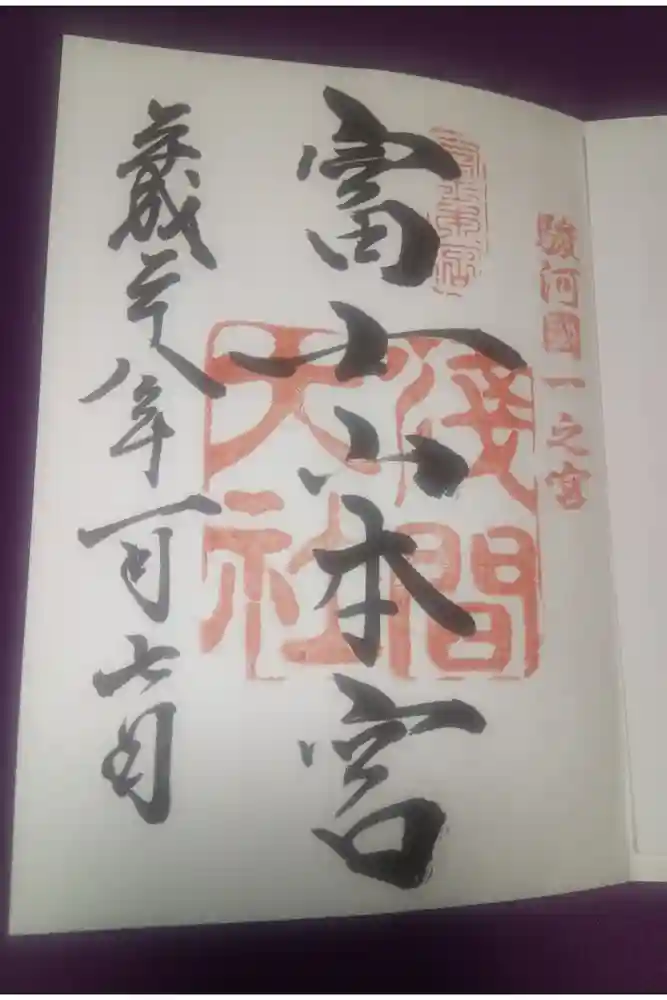 駿河國一之宮
富士山本宮
淺間
大社
平成二十八年一月七日